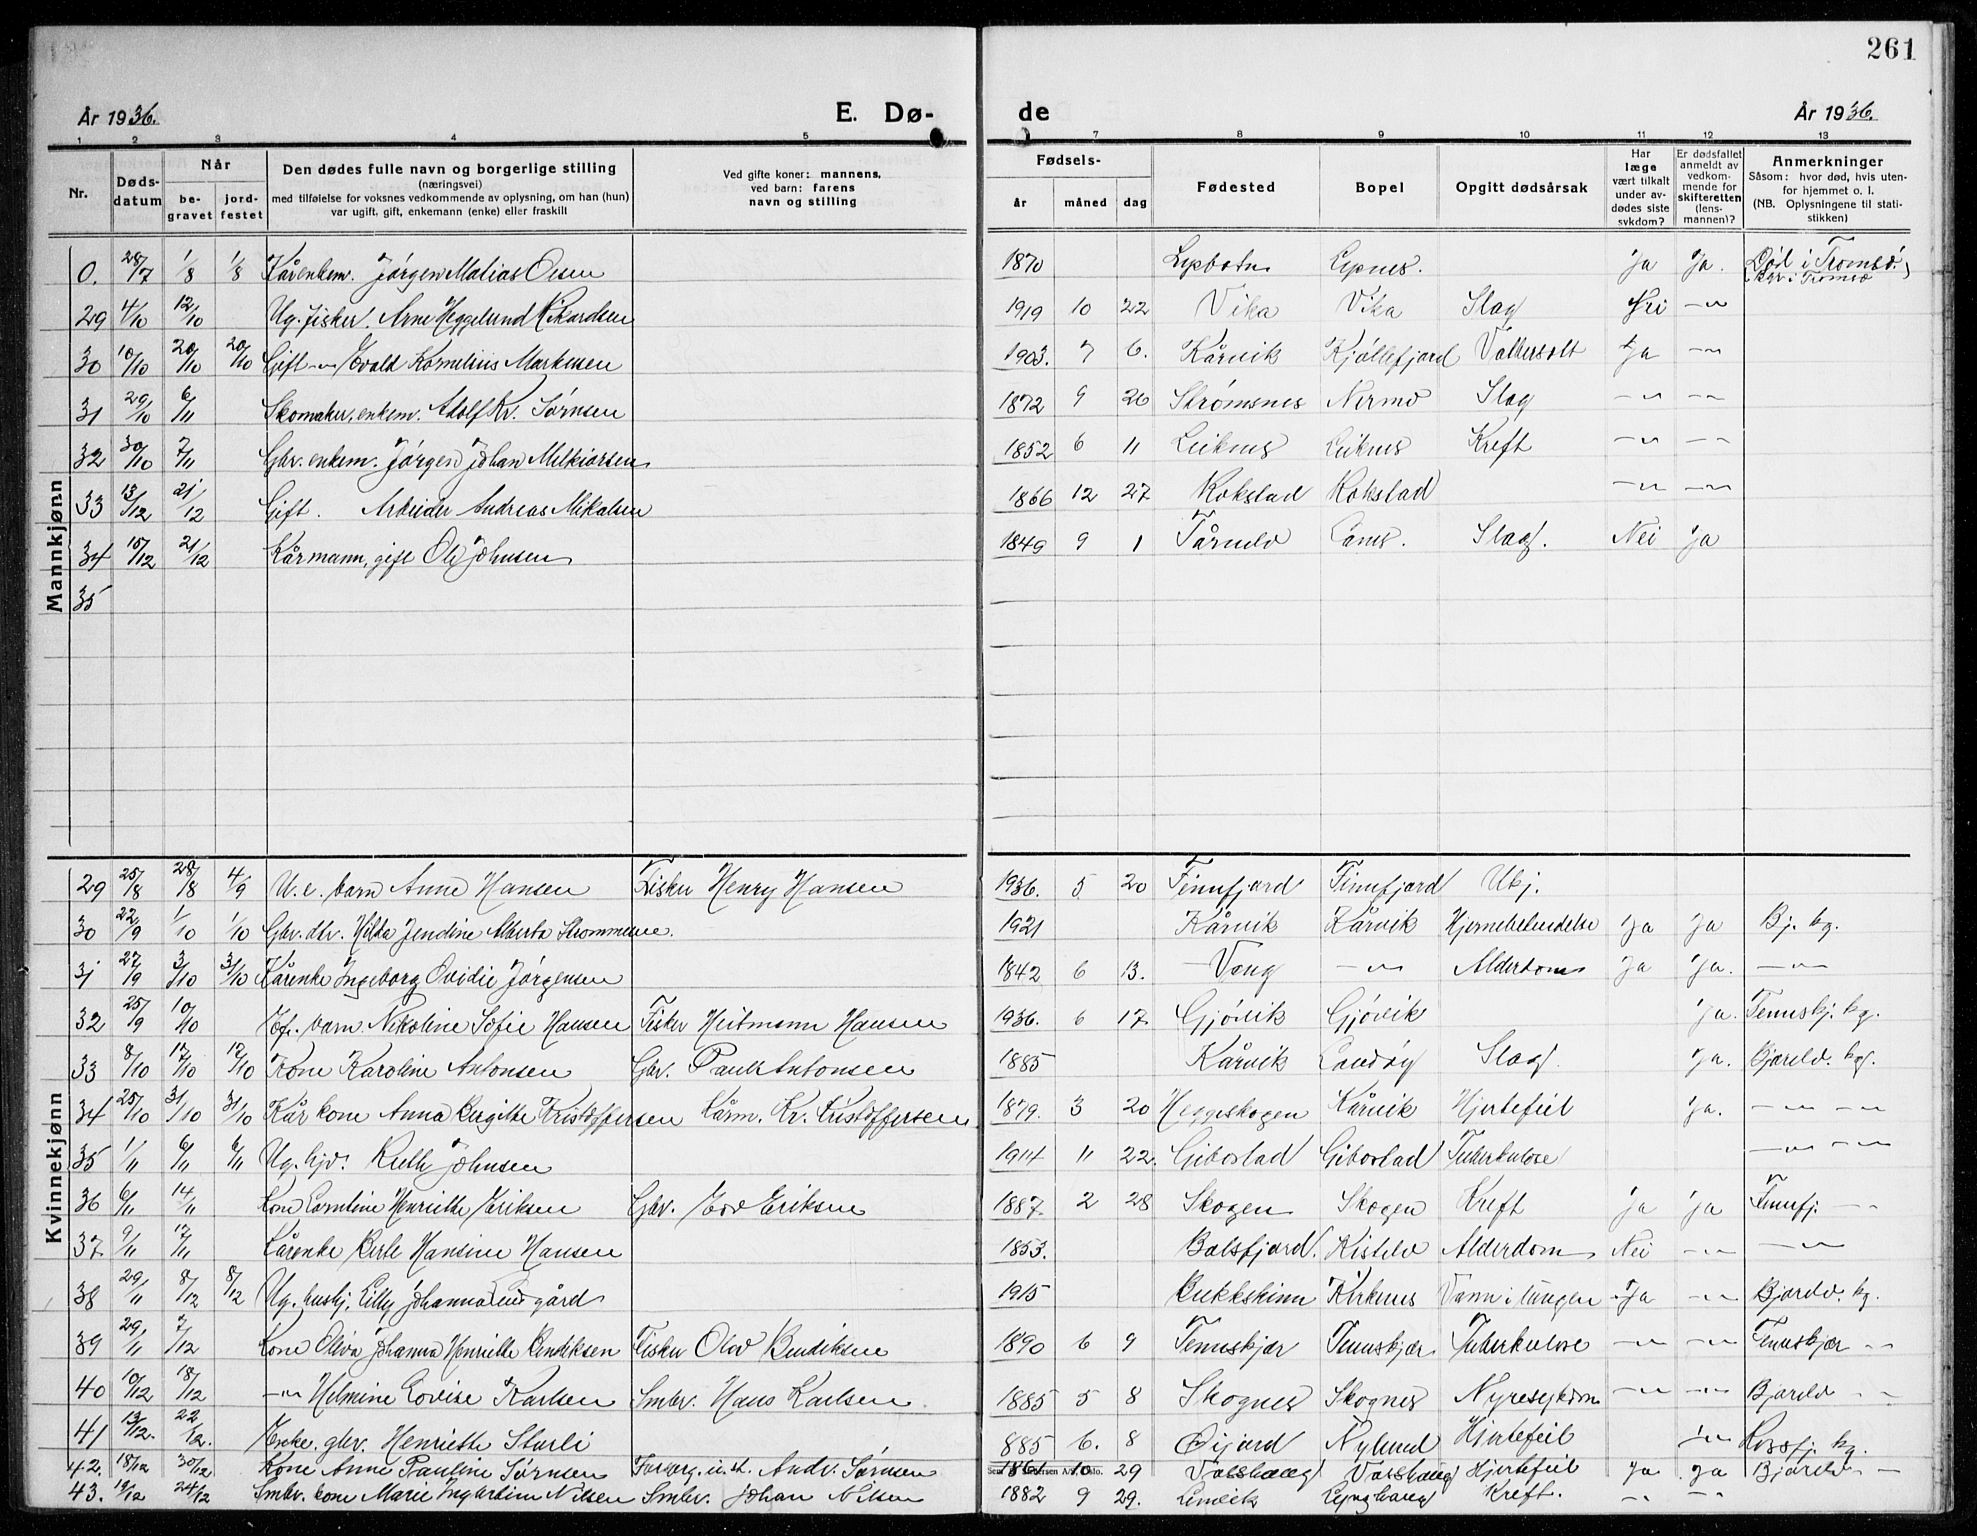 261
År 1936. E. Dø- de År 1936.
1 2 3 4 5 7 8 9 10 11 12 13
Nr. Døds-datum Når be-gravet jord-festet Den dødes fulle navn og borgerlige stilling (næringsvei) med tilføielse for voksnes vedkommende av oplysning, om han (hun) var ugift, gift, enkemann (enke) eller fraskilt Ved gifte koner: mannens, ved barn: farens navn og stilling Fødsels- år måned dag Fødested Bopel Opgitt dødsårsak Har læge vært tilkalt under av-dødes siste sykdom? Er dødsfallet anmeldt av vedkom-mende for skifteretten (lens-mannen)? Anmerkninger Såsom: hvor død, hvis uten-for hjemmet o. l. (NB. Oplysningene til stati-stikken)
Mannkjønn
0. 28/7 1/8 1/8 Kårenkem. Jørgen Matias Olsen 1870 Lysbotn Lysnes. Ja Ja. Død i Tromsø. (Bgr. i Tromsø)
29 4/10 12/10 Ug. fisker. Arne Heggelund Rikardsen 1919 10 22 Vika Vika Slag Nei -"-
30 10/10 20/10 20/10 Gift -"- Evald Kornelius Markusen 1903. 7 6. Kårvik Kjøllefjord Vattersott Ja -"-
31 29/10 6/11 Skomaker, enkem. Adolf Kr. Sørnsen 1872 9 26 Strømsnes Nermo Slag -"- -"-
32 30/10 7/11 Gbr. enkem. Jørgen Johan Melkiorsen 1852 6 11 Leiknes Leiknes Kreft -"- -"-
33 13/12 21/12 Gift. Arbeider Andreas Mikalsen 1866 12 27 Rokstad Rokstad -"- -"-
34 15/12 21/12 Kårmann, gift Ole Johnsen 1849 9 1 Tårnelv Lanes. Slag. Nei Ja
35
Kvinnekjønn
29 25/8 28/8 4/9 U. e. barn Anne Hansen Fisker Henry Hansen 1936. 5 20 Finnfjord Finnfjord Ubj.
30 22/9 1/10 1/10 Gbr. dtr. Hilda Jendine Alberta Strømmene. 1921 Kårvik Kårvik Hjernebetendelse Ja Ja Bj. kg.
31 27/9 3/10 3/10 Kårenke Ingeborg Ovidie Jørgensen 1842 6 13. Vang -"- Alderdom Ja Ja. -"-
32 25/9 10/10 Ef. barn Nikoline Sofie Hansen Fisker Heitmann Hansen 1936. 6 17. Gjövik Gjövik Ja. Tennskj. kg.
33 8/10 17/10 17/10 Kone Karoline Antonsen Gbr. Paul Antonsen 1885 Kårvik Landøy Slag Ja. Bjorelv. kg.
34 25/10 31/10 31/10 Kårkone Anna Bergitte Kristoffersen Kårm. Kr. Kristoffersen 1879. 3 20 Heggeskogen Kårvik Hjertefeil Ja. -"- -"-
35 1/11 6/11 6/11 Ug. hjv. Ruth Johnsen 1914 11 22. Gibostad Gibostad Tuberkulose -"- -"-
36 6/11 14/11 Kone Karoline Henriette Eriksen Gbr. Edv Eriksen 1887 2 28 Skogen Skogen Kreft Ja Ja Finnfj. -"-
37 9/11 17/11 Kårenke Berle Hansine Hansen 1853. Balsfjord. Kistelv Alderdom Nei -"- -"-
38 29/11 8/12 8/12 Ug. hushj. Lilly Johanna Lindgård 1915 Bukkskinn Kirkenes Vann i lungen Ja -"- Bjorelv. kg.
39 29/11 7/12 Kone Oliva Johanna Henriette Bendiksen Fisker Olav Bendiksen 1890 6 9 Tennskjær Tennskjær Tuberkulose -"- -"- Tennskjær -"-
40 10/12 18/12 -"- Helmine Lovise Karlsen Smbr. Hans Karlsen. 1885 5 8 Skognes Skognes Nyresykdom -"- -"- Bjorelv -"-
41 13/12. 22/12. Enke. gbr. Henriette Storli 885 6. 8 Øijord Nylund Hjertefeil -"- Rossfj. kg.
42. 18/12 30/12 Kone Anne Pauline Sørnsen Andr. Sørnsen 1861 10 29 Valshaug Valshaug Hjertefeil Ja Ja Bjorelv -"-
43. 19/12 24/12 Smbr. kone Marie Ingebertine Nilsen Smbr. Johan Nilsen 1882 9 29. Lenvik Lynghaug Kreft. -"- -"-